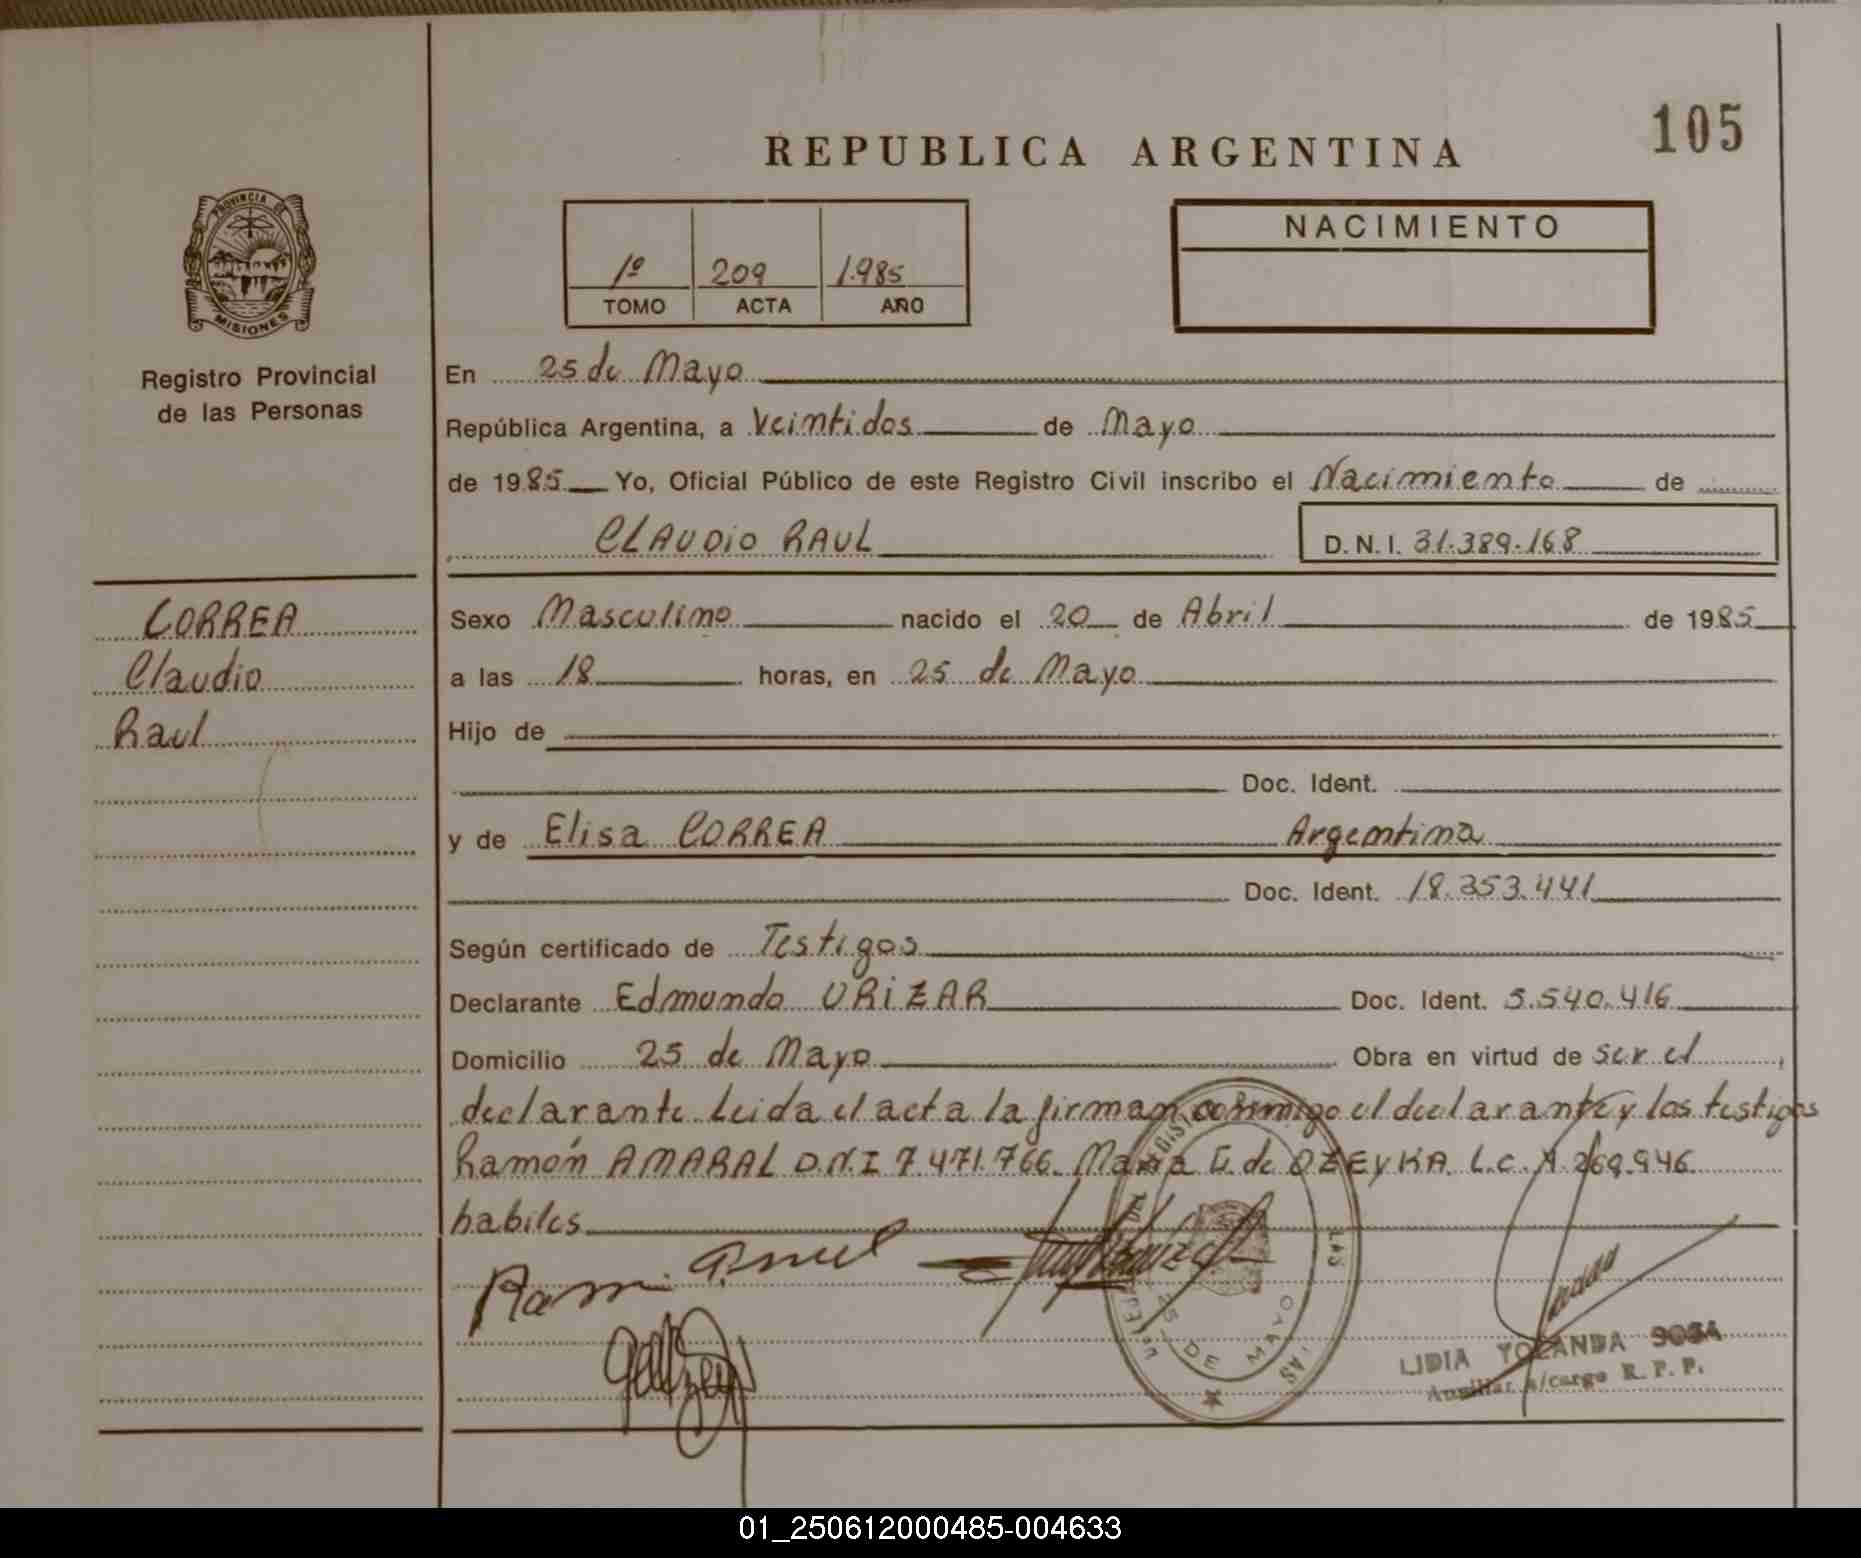 105
REPUBLICA ARGENTINA
PROVINCIA DE
MISIONES
Registro Provincial
de las Personas
1º 209 1.985
TOMO ACTA AÑO
NACIMIENTO
En 25 de Mayo
República Argentina, a Veintidos de Mayo
de 1985 Yo, Oficial Público de este Registro Civil inscribo el Nacimiento de
CLAUDIO RAUL D.N.I. 31.389.168
CORREA
Claudio
Raul
Sexo Masculino nacido el 20 de Abril de 1985
a las 18 horas, en 25 de Mayo
Hijo de
Doc. Ident.
y de Elisa CORREA Argentina
Doc. Ident. 18.353.441
Según certificado de Testigos
Declarante Edmundo URIZAR Doc. Ident. 5.540.416
Domicilio 25 de Mayo Obra en virtud de ser el
declarante leida el acta la firman conmigo el declarante y los testigos
Ramón AMARAL D.N.I 7.471.766. Maria G. de OZEYKA. L.C. 269.946
habiles
25 DE MAYO
LIDIA YOLANDA SOSA
Auxiliar a/cargo R. P. P.
01_250612000485-004633